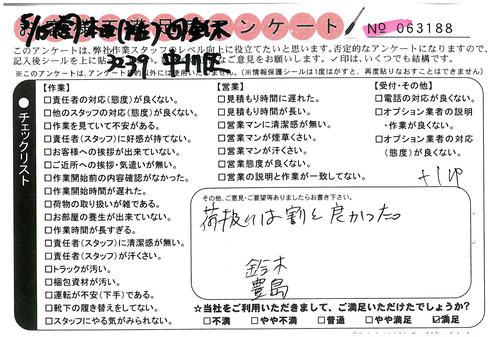 アンケート
№ 063188
このアンケートは、弊社作業スタッフのレベル向上に役立てたいと思います。否定的なアンケートになりますので、
記入後シールを上に貼 ご意見をお願いします。✓印は、いくつでも結構です。
※このアンケートは、 的以外には使用いたしません。(※情報保護シールは1度はがすと、再度貼りなおすことはできません)
3239
チェックリスト
【作業】
□責任者の対応(態度)が良くない。
□他のスタッフの対応(態度)が良くない。
□作業を見ていて不安がある。
□責任者(スタッフ)に好感が持てない。
□お客様への挨拶が出来ていない。
□ご近所への挨拶・気遣いが無い。
□作業開始前の内容確認がなかった。
□作業開始時間が遅れた。
□荷物の取り扱いが雑である。
□お部屋の養生が出来ていない。
□作業時間が長すぎる。
□責任者(スタッフ)に清潔感が無い。
□責任者(スタッフ)が汗くさい。
□トラックが汚い。
□梱包資材が汚い。
□運転が不安(下手)である。
□靴下の履き替えをしてない。
□スタッフにやる気がみられない。
【営業】
□見積もり時間に遅れた。
□見積もり時間が長い。
□営業マンに清潔感が無い。
□営業マンが煙草くさい。
□営業マンが汗くさい。
□営業態度が良くない。
□営業の説明と作業が一致してない。
【受付・その他】
□電話の対応が良くない。
□オプション業者の説明
・作業が良くない。
□オプション業者の対応
(態度)が良くない。
+1up
その他、ご意見・ご要望等ありましたらお書き下さい。
荷扱いは割と良かった。
鈴木
豊島
☆当社をご利用いただきまして、ご満足いただけたでしょうか?
□不満 □やや不満 □普通 □やや満足 ☑満足